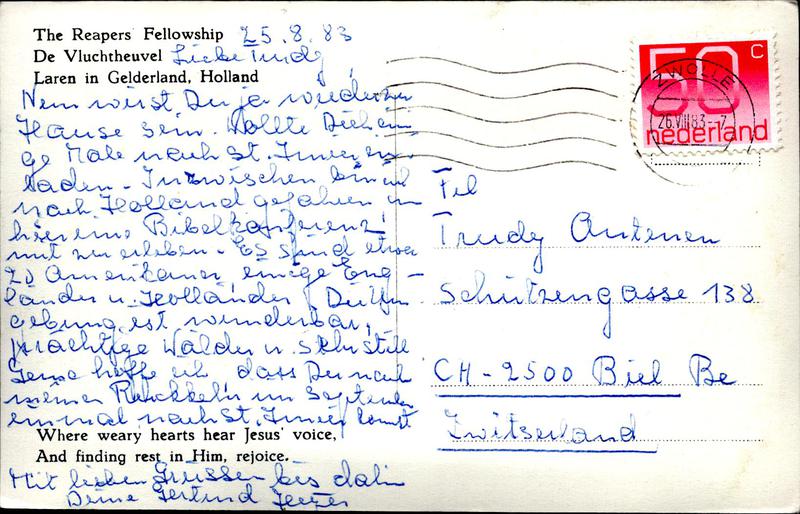 The Reapers' Fellowship 25.8.83
De Vluchtheuvel Liebe Trudy,
Laren in Gelderland, Holland
Nun wirst Du ja wieder zu
Hause sein. Wollte Dich eini
ge Male nach St. Imier ein
laden. Inzwischen bin ich
nach Holland gefahren um
hier eine Bibelkonferenz
mit zu erleben. Es sind etwa
20 Amerikaner, einige Eng-
länder u. Holländer. Die Um
gebung ist wunderbar,
prächtige Wälder u. sehr still
Gerne hoffe ich, dass Du nach
meiner Rückkehr im September
einmal nach St. Imier kommst
Where weary hearts hear Jesus' voice,
And finding rest in Him, rejoice.
Mit lieben Grüssen bis dahin
Deine Gertrud
50 C
nederland
ZWOLLE
26.VIII.83.-7
Frl
Trudy Antenen
Schützengasse 138
CH-2500 Biel Be
Zwitserland